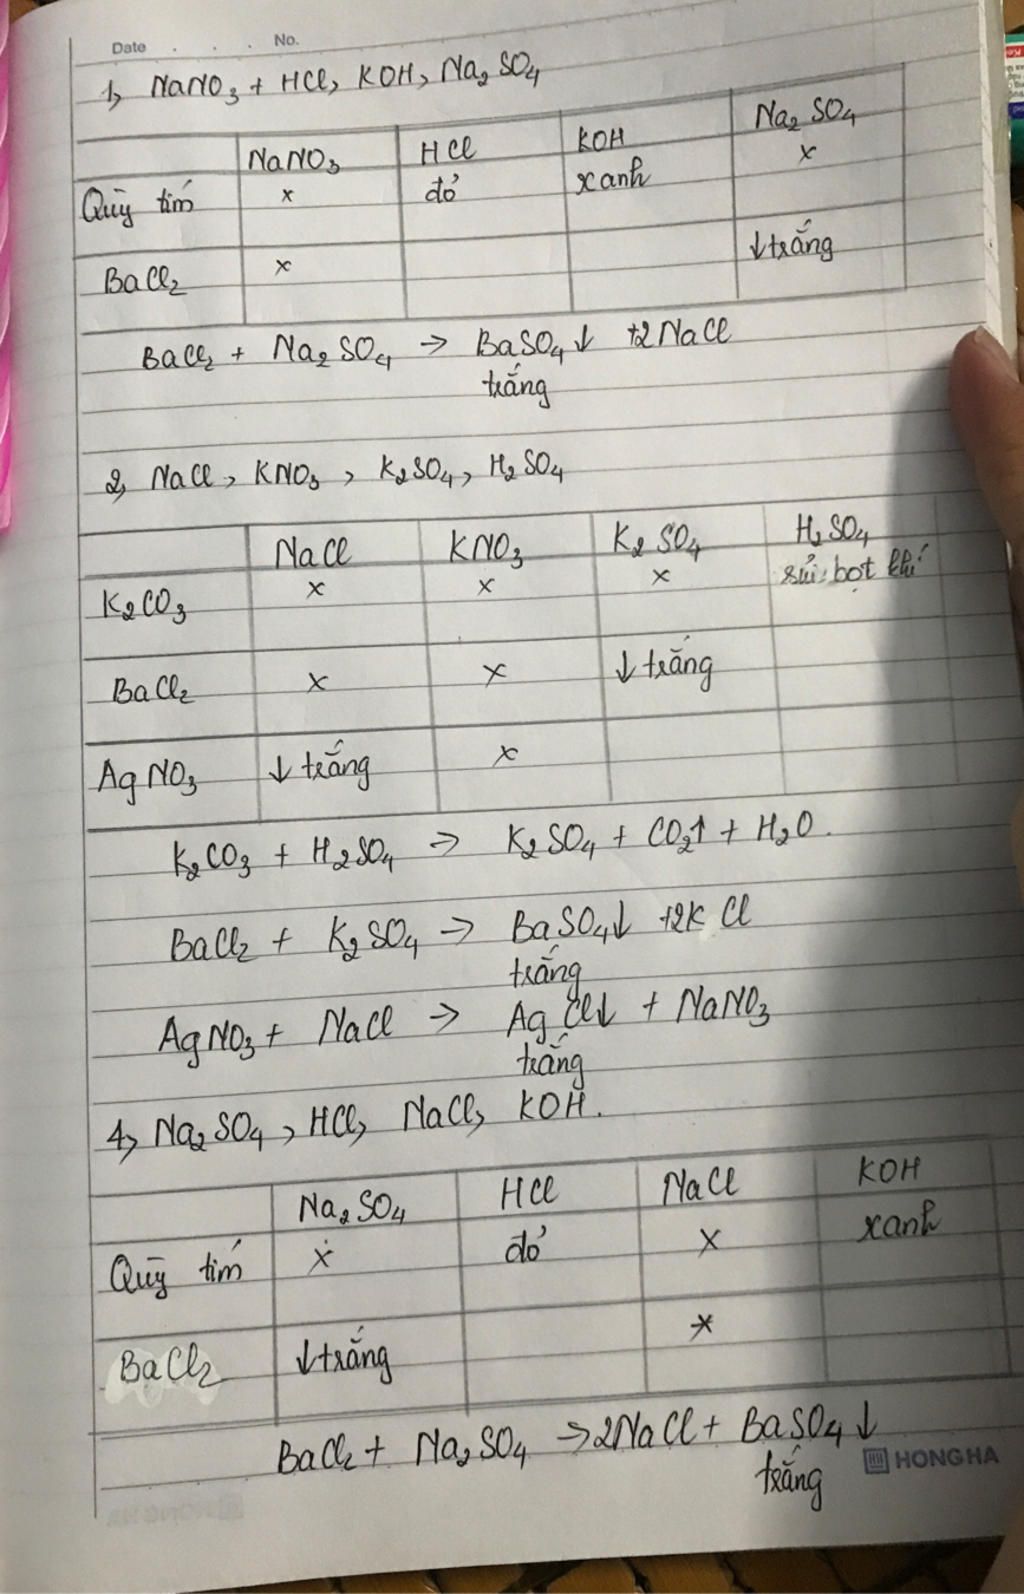 Date . . . No.
1, NaNO3 + HCl, KOH, Na2SO4
NaNO3 HCl KOH Na2SO4
Quỳ tím x đỏ xanh x
BaCl2 x ↓ trắng
BaCl2 + Na2SO4 → BaSO4↓ +2NaCl
trắng
2, NaCl, KNO3, K2SO4, H2SO4
NaCl KNO3 K2SO4 H2SO4
K2CO3 x x x sủi bọt khí
BaCl2 x x ↓ trắng
AgNO3 ↓ trắng x
K2CO3 + H2SO4 → K2SO4 + CO2↑ + H2O.
BaCl2 + K2SO4 → BaSO4↓ +2KCl
trắng
AgNO3 + NaCl → AgCl↓ + NaNO3
trắng
4, Na2SO4, HCl, NaCl, KOH.
Na2SO4 HCl NaCl KOH
Quỳ tím x đỏ x xanh
BaCl2 ↓ trắng x
BaCl2 + Na2SO4 → 2NaCl + BaSO4↓
trắng
HONG HA